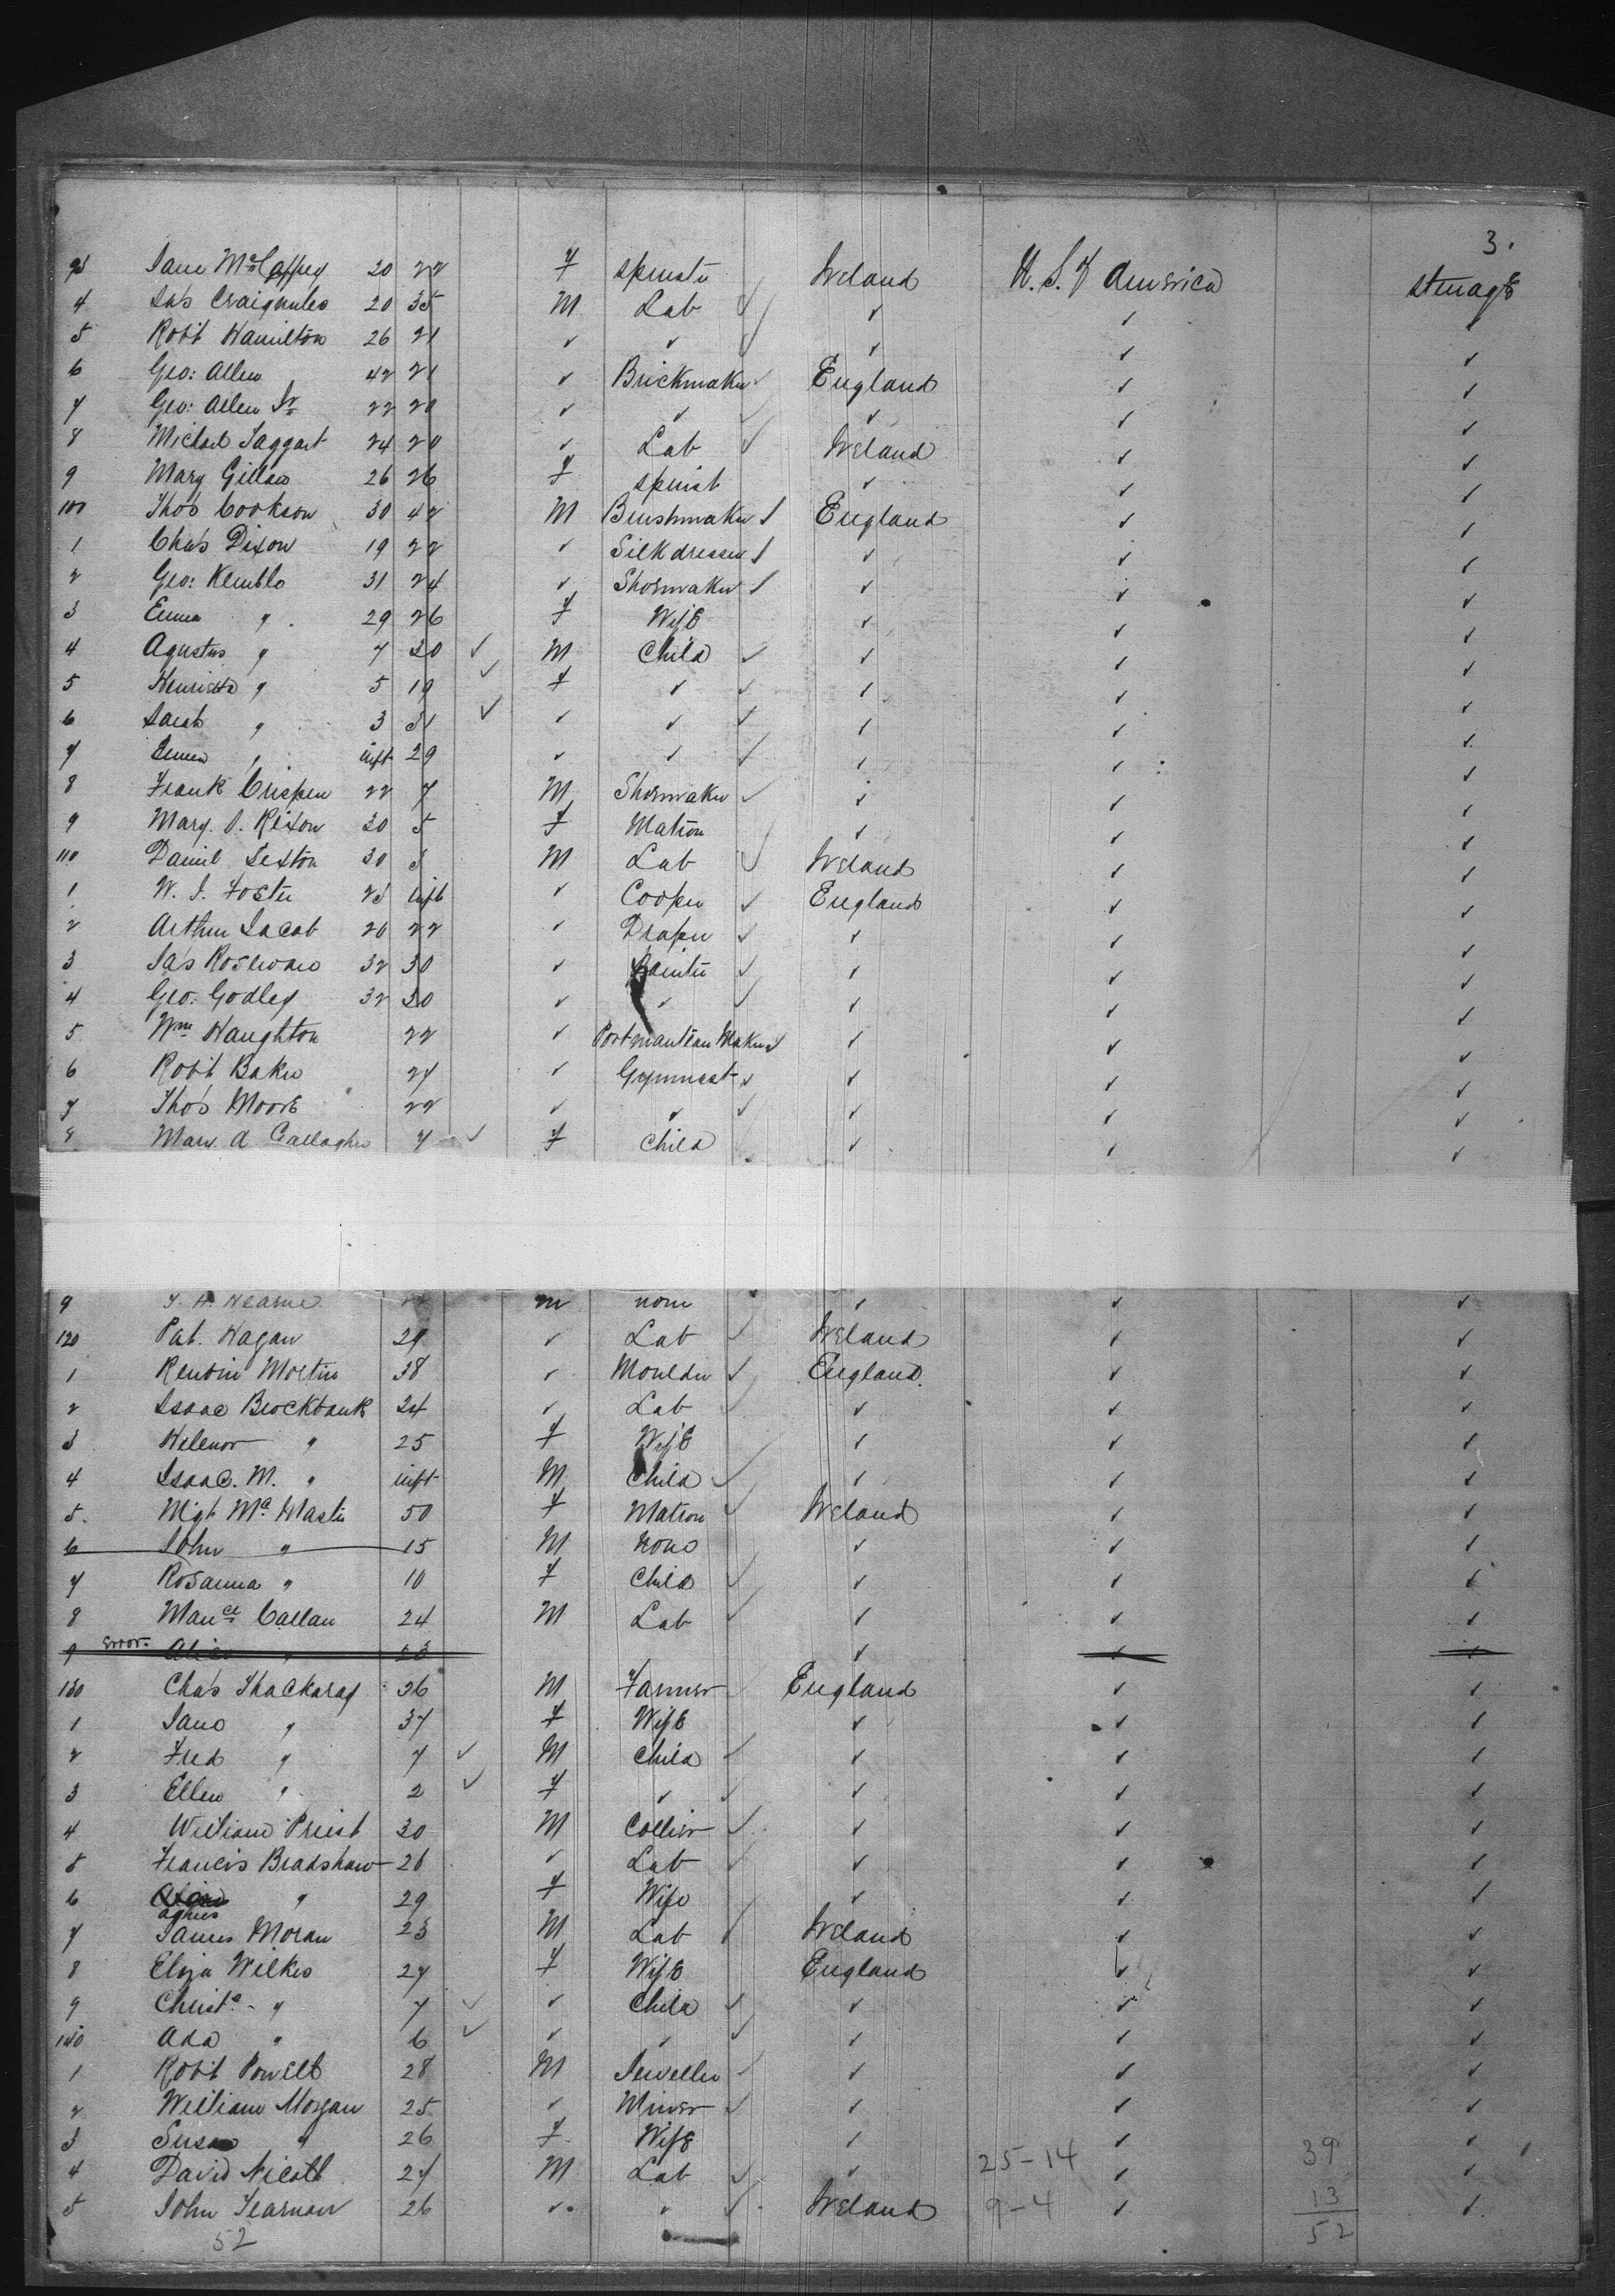 3.
93 Jane McCaffrey 20 22 F Spinster Ireland U. S. of America Steerage
4 Jas Craigmiles 20 35 M Lab ✓ ✓ ✓ ✓
5 Robt Hamilton 26 21 ✓ ✓ ✓ ✓ ✓ ✓
6 Geo: Allen 42 21 ✓ Brickmaker ✓ England ✓ ✓
7 Geo: Allen Jr 22 20 ✓ ✓ ✓ ✓ ✓ ✓
8 Michael Taggart 24 20 ✓ Lab ✓ Ireland ✓ ✓
9 Mary Gillan 26 26 F Spinst ✓ ✓ ✓
100 Thos Cookson 30 42 M Brushmaker ✓ England ✓ ✓
1 Chas Dixon 19 22 ✓ Silk dresser ✓ ✓ ✓ ✓
2 Geo: Kemble 31 24 ✓ Shoemaker ✓ ✓ ✓ ✓
3 Emma " 29 26 F Wife ✓ ✓ ✓
4 Agustus " 7 30 ✓ M Child ✓ ✓ ✓ ✓
5 Henrietta " 5 19 ✓ F ✓ ✓ ✓ ✓ ✓
6 Sarah " 3 31 ✓ ✓ ✓ ✓ ✓ ✓ ✓
7 " inft 29 ✓ ✓ ✓ ✓ ✓ ✓
8 Frank Crispen 22 7 M Shoemaker ✓ ✓ ✓ ✓
9 Mary. 30 5 F Matron ✓ ✓ ✓
110 Daniel Sexton 30 3 M Lab ✓ Ireland ✓ ✓
1 W. J. Foster 23 inft ✓ Cooper ✓ England ✓ ✓
2 Arthur Jacob 20 22 ✓ Draper ✓ ✓ ✓ ✓
3 Jas 32 30 ✓ Painter ✓ ✓ ✓ ✓
4 Geo: Godley 32 30 ✓ ✓ ✓ ✓ ✓ ✓
5 Wm Haughton 22 ✓ Portmanteau Maker ✓ ✓ ✓ ✓
6 Robt Baker 27 ✓ Gymnast ✓ ✓ ✓ ✓
7 Thos Moore 22 ✓ ✓ ✓ ✓ ✓ ✓
8 Mary A Gallagher 7 ✓ F Child ✓ ✓ ✓
9 Hearne M none ✓ ✓ ✓
120 Pat. Hagan 29 ✓ Lab ✓ Ireland ✓ ✓
1 38 ✓ Moulder ✓ England ✓ ✓
2 Isaac Brockbank 24 ✓ Lab ✓ ✓ ✓ ✓
3 Helenor " 25 F Wife ✓ ✓ ✓
4 Isaac. M. " inft M Child ✓ ✓ ✓ ✓
5. Mgt McMaster 50 F Matron ✓ Ireland ✓ ✓
6 John " 15 M none ✓ ✓ ✓
7 Rosanna " 10 F Child ✓ ✓ ✓ ✓
8 Callan 24 M Lab ✓ ✓ ✓ ✓
9 Error. Alice " 23 ✓ ✓ ✓
130 Chas Thackaray 36 M Farmer ✓ England ✓ ✓
1 Jane " 37 F Wife ✓ ✓ ✓
2 Fred " 7 ✓ M Child ✓ ✓ ✓ ✓
3 Ellen " 2 ✓ F ✓ ✓ ✓ ✓ ✓
4 William Priest 30 M Collier ✓ ✓ ✓ ✓
5 Francis Bradshaw 26 ✓ Lab ✓ ✓ ✓ ✓
6 " 29 F Wife ✓ ✓ ✓
Agnes
7 James Moran 23 M Lab ✓ Ireland ✓ ✓
8 Eliza Wilkes 27 F Wife England ✓ ✓
9 Christa " 7 ✓ ✓ Child ✓ ✓ ✓ ✓
140 Ada " 6 ✓ ✓ ✓ ✓ ✓ ✓ ✓
1 Robt Powell 28 M Jeweller ✓ ✓ ✓ ✓
2 William Morgan 25 ✓ Miner ✓ ✓ ✓ ✓
3 Susan " 26 F Wife ✓ ✓ ✓
4 David Nicoll 27 M Lab ✓ ✓ 25-14 ✓ 39 ✓
5 John 26 ✓ ✓ ✓ Ireland 9-4 ✓ 13 ✓
52 52